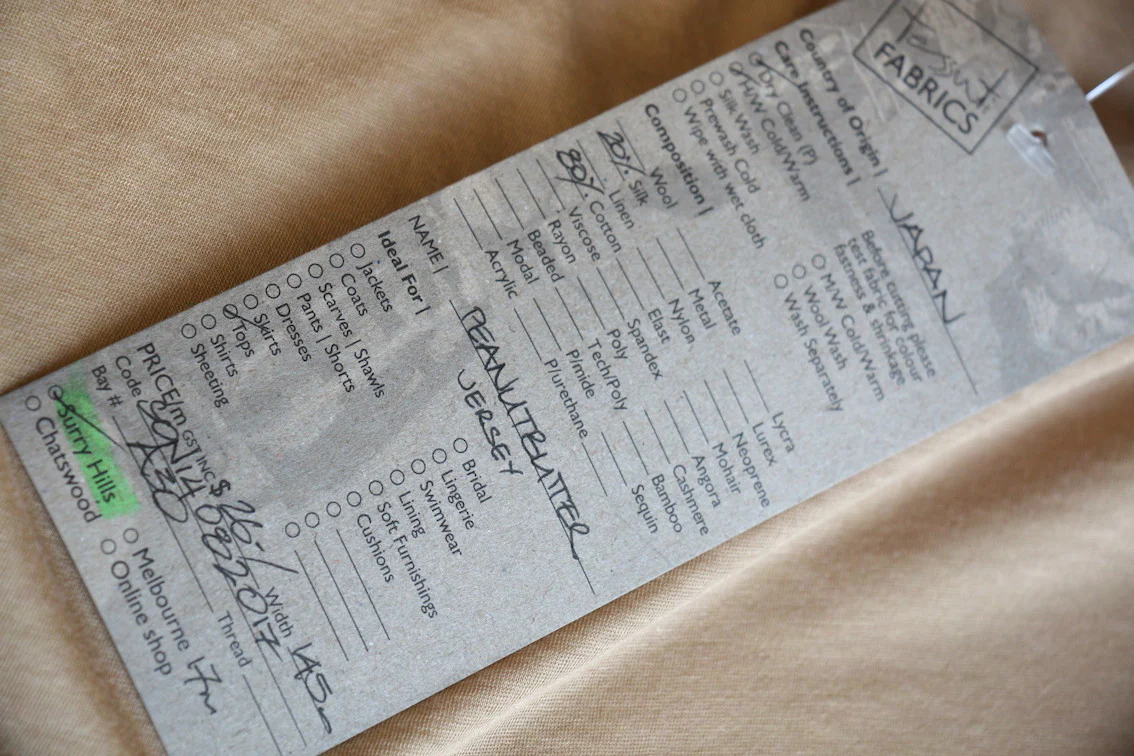 Tessuti
FABRICS
Country of Origin | JAPAN
Care Instructions |
Dry Clean (P)
H/W Cold/Warm
Silk Wash
Prewash Cold
Wipe with wet cloth
Before cutting please
test fabric for colour
fastness & shrinkage
M/W Cold/Warm
Wool Wash
Wash Separately
Composition |
Wool
20% Silk
Linen
80% Cotton
Viscose
Rayon
Beaded
Modal
Acrylic
Acetate
Metal
Nylon
Elast
Spandex
Poly
Tech/Poly
P/mide
P/urethane
Lycra
Lurex
Neoprene
Mohair
Angora
Cashmere
Bamboo
Sequin
NAME | PEANUTBUTTER
JERSEY
Ideal For |
Jackets
Coats
Scarves | Shawls
Pants | Shorts
Dresses
Skirts
Tops
Shirts
Sheeting
Bridal
Lingerie
Swimwear
Lining
Soft Furnishings
Cushions
PRICE/m GST INC $26./ Width 145cm
Code
Thread
Bay # A30
Surry Hills
Chatswood
Melbourne 17m
Online shop